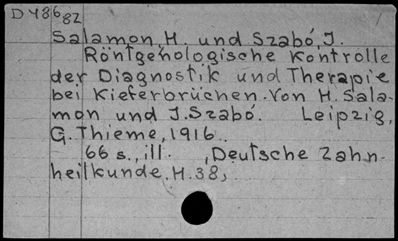 D 48682
Salamon, H. und Szabó, J.
Röntgenologische Kontrolle
der Diagnostik und Therapie
bei Kieferbrüchen. Von H. Sala-
mon und J. Szabó. Leipzig,
G. Thieme, 1916.
66 s., ill. , Deutsche Zahn-
heilkunde. H. 38,